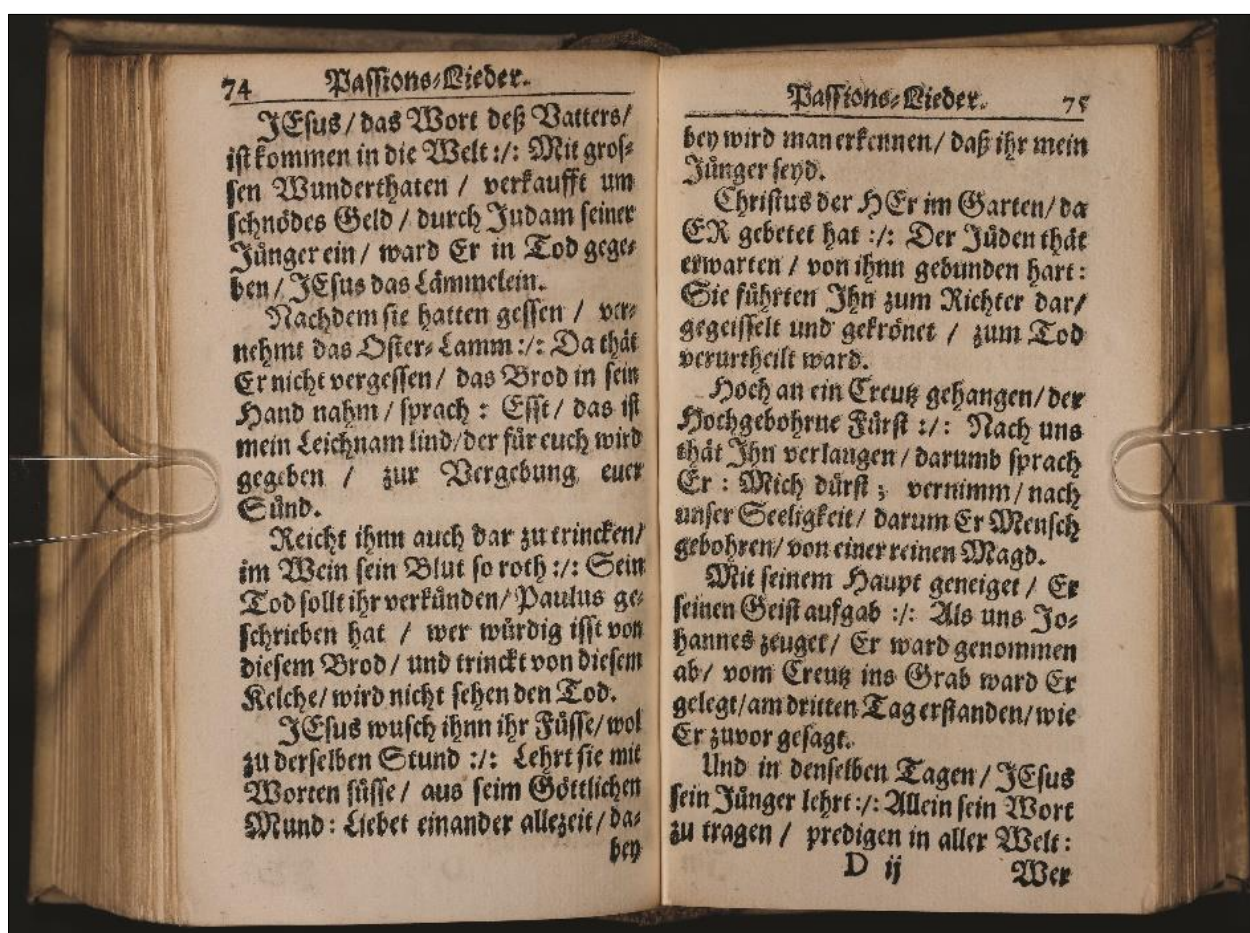 74 Passions-Lieder.
JEsus / das Wort deß Vatters/
ist kommen in die Welt :/: Mit gros-
sen Wunderthaten / verkaufft um
schnödes Geld / durch Judam seiner
Jünger ein / ward Er in Tod gege-
ben / JEsus das Lämmelein.
Nachdem sie hatten gessen / ver-
nehmt das Oster-Lamm :/: Da thät
Er nicht vergessen / das Brod in sein
Hand nahm / sprach : Esst / das ist
mein Leichnam lind/der für euch wird
gegeben / zur Vergebung euer
Sünd.
Reicht ihnn auch dar zu trincken/
im Wein sein Blut so roth :/: Sein
Tod sollt ihr verkünden/ Paulus ge-
schrieben hat / wer würdig isst von
diesem Brod / und trinckt von diesem
Kelche/ wird nicht sehen den Tod.
JEsus wusch ihnn ihr Füsse/ wol
zu derselben Stund :/: Lehrt sie mit
Worten süsse / aus seim Göttlichen
Mund : Liebet einander allezeit / da-
bey
Passions-Lieder. 75
bey wird man erkennen/ daß ihr mein
Jünger seyd.
Christus der HEr im Garten/ da
ER gebetet hat :/: Der Jüden thät
erwarten / von ihnn gebunden hart :
Sie führten Ihn zum Richter dar/
gegeisselt und gekrönet / zum Tod
verurtheilt ward.
Hoch an ein Creutz gehangen/ der
Hochgebohrne Fürst :/: Nach uns
thät Ihn verlangen / darumb sprach
Er : Mich dürst ; vernimm / nach
unser Seeligkeit/ darum Er Mensch
gebohren/ von einer reinen Magd.
Mit seinem Haupt geneiget / Er
seinen Geist aufgab :/: Als uns Jo-
hannes zeuget/ Er ward genommen
ab/ vom Creutz ins Grab ward Er
gelegt/am dritten Tag erstanden/ wie
Er zuvor gesagt.
Und in denselben Tagen / JEsus
sein Jünger lehrt :/: Allein sein Wort
zu tragen / predigen in aller Welt :
D ij Wer